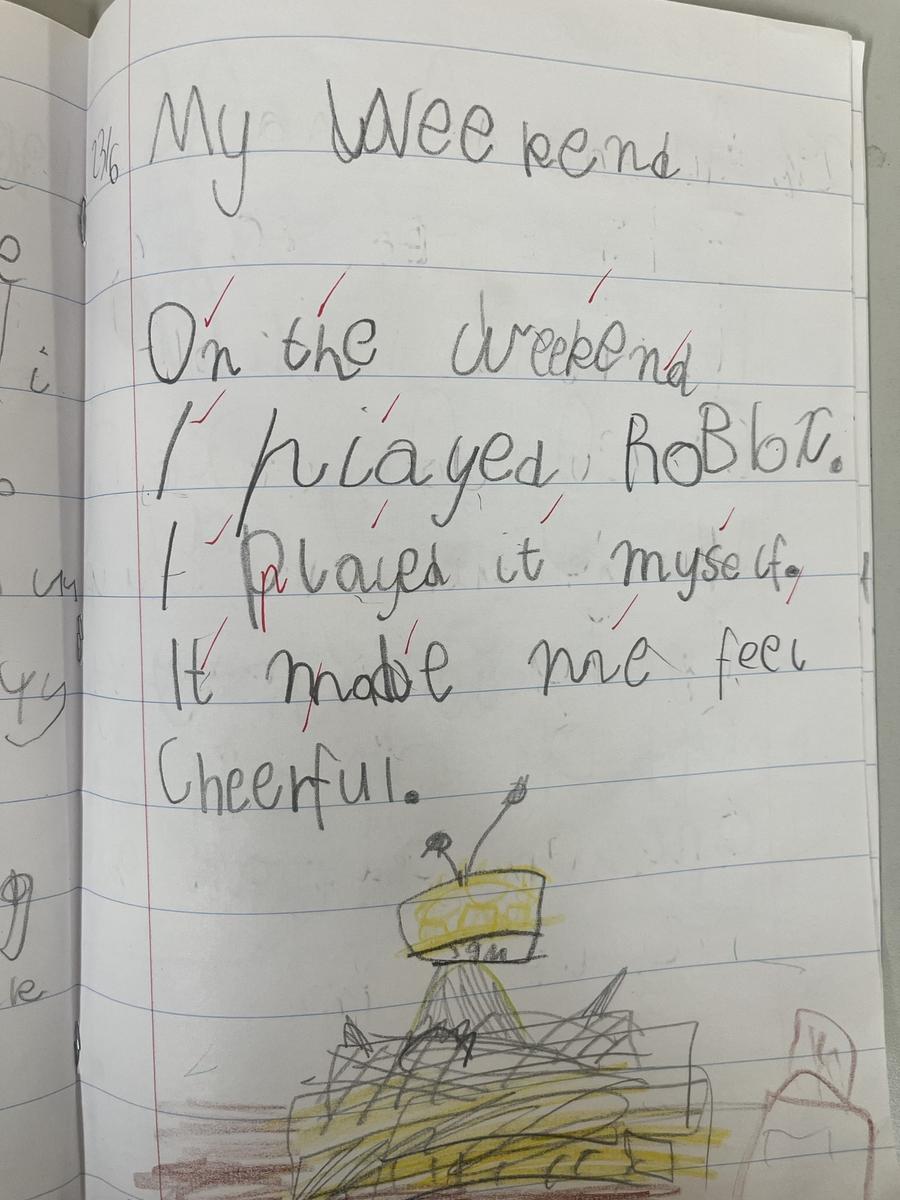 My Weekend
23/6
On the weekend
I played RoBlox.
I played it myself.
It made me feel
Cheerful.